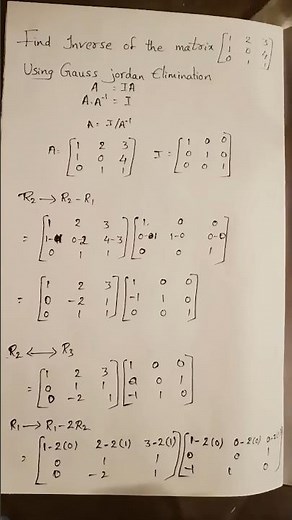 Find Inverse of the matrix [1 2 3
1 0 4
0 1 1]
Using Gauss jordan Elimination
A = IA
A·A⁻¹ = I
A = I/A⁻¹
A = [1 2 3 I = [1 0 0
1 0 4 0 1 0
0 1 1] 0 0 1]
R₂ → R₂ - R₁
= [1 2 3 [1. 0 0
1-1 0-2 4-3 0-1 1-0 0-0
0 1 1] 0 0 1]
= [1 2 3 [1 0 0
0 -2 1 -1 1 0
0 1 1] 0 0 1]
R₂ ↔ R₃
= [1 2 3 [1 0 0
0 1 1 0 0 1
0 -2 1] -1 1 0]
R₁ → R₁ - 2R₂
= [1-2(0) 2-2(1) 3-2(1) [1-2(0) 0-2(0) 0-2
0 1 1 0 0 1
0 -2 1] -1 1 0]